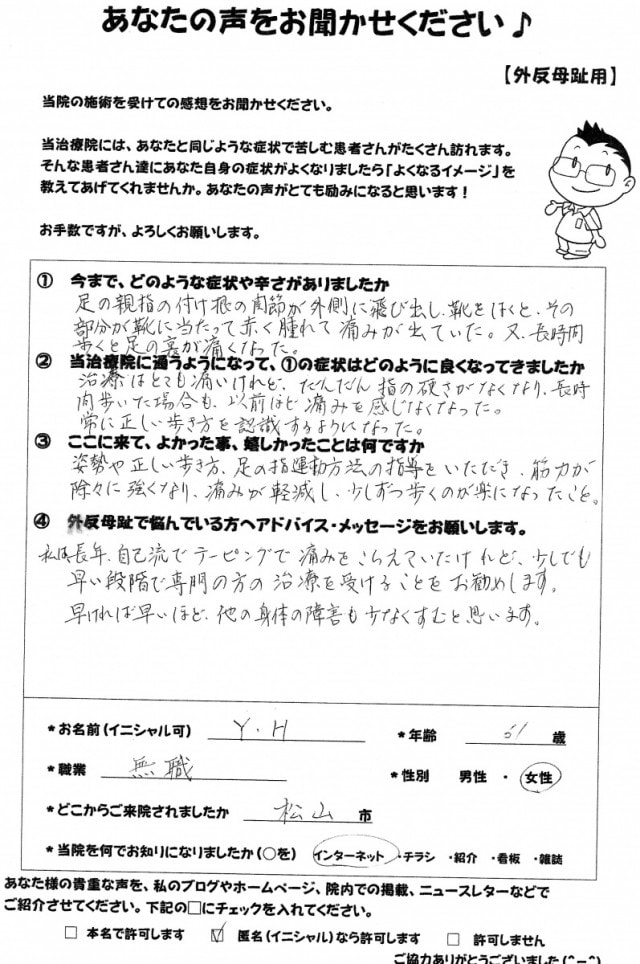 あなたの声をお聞かせください♪
【外反母趾用】
当院の施術を受けての感想をお聞かせください。
当治療院には、あなたと同じような症状で苦しむ患者さんがたくさん訪れます。
そんな患者さん達にあなた自身の症状がよくなりましたら「よくなるイメージ」を
教えてあげてくれませんか。あなたの声がとても励みになると思います！
お手数ですが、よろしくお願いします。
① 今まで、どのような症状や辛さがありましたか
足の親指の付け根の関節が外側に飛び出し、靴をはくと、その
部分が靴に当たって赤く腫れて痛みが出ていた。又、長時間
歩くと足の裏が痛くなった。
② 当治療院に通うようになって、①の症状はどのように良くなってきましたか
治療はとても痛いけれど、だんだん指の硬さがなくなり、長時
間歩いた場合も、以前ほど痛みを感じなくなった。
常に正しい歩き方を認識するようになった。
③ ここに来て、よかった事、嬉しかったことは何ですか
姿勢や正しい歩き方、足の指運動方法の指導をいただき、筋力が
除々に強くなり、痛みが軽減し、少しずつ歩くのが楽になったこと。
④ 外反母趾で悩んでいる方へアドバイス・メッセージをお願いします。
私は長年、自己流でテーピングで痛みをこらえていたけれど、少しでも
早い段階で専門の方の治療を受けることをお勧めします。
早ければ早いほど、他の身体の障害も少なくすむと思います。
＊お名前（イニシャル可） Y．H ＊年齢 51 歳
＊職業 無職 ＊性別 男性 ・ 女性
＊どこからご来院されましたか 松山 市
＊当院を何でお知りになりましたか（○を） インターネット ・チラシ ・紹介 ・看板 ・雑誌
あなた様の貴重な声を、私のブログやホームページ、院内での掲載、ニュースレターなどで
ご紹介させてください。下記の□にチェックを入れてください。
□ 本名で許可します ☑ 匿名（イニシャル）なら許可します □ 許可しません
ご協力ありがとうございました（^－^）